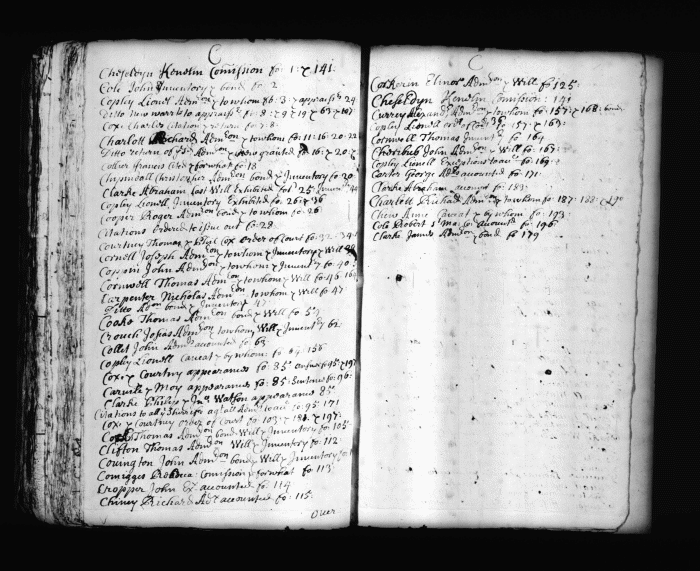 C
Cheseldyn Kenelm Comission fo: 1: & 141:
Cole John Inventory & bond fo: 2
Copley Lionel Adm:on & to whom fo: 3: & appraisem:t 24
Ditto new warr:ts to appraise fo: 8: & 9 & 19 & 63 & 107:
Cox: Charles Citation & return fo: 7: 8:
Charlott Richard Adm:on & to whom fo: 11: 16: 20: 22
Ditto return of granted fo: 16: & 20:
Collier francis Cited & for what fo: 18
Christopher Adm:on bond & Inventory fo: 20
Clarke Abraham Last Will Exhibited fo: 25
Copley Lionell Inventory Exhibited fo: 26 & 36
Cooper Roger Adm:on bond & to whom fo: 26
Citations ordered to issue out fo: 28
Courtney Thomas & Eliz: Cox order of Court fo: 32:
Cornell Joseph Adm:on & to whom & Inventory & Will
Coppin John Adm:on & to whom & Invent:ry fo: 40:
Cornwell Thomas Adm:on & to whom & Will fo: 46
Carpenter Nicholas Adm:on to whom & Will fo: 47
Ditto Adm:on bond & Inventory 47
Cooke Thomas Adm:on bond & Will fo: 57
Crouch Josias Adm:on to whom Will & Invent:ry 62
Collet John Adm:r accounted fo: 63
Copley Lionell Caveat & by whom: fo 158
Cox: & Courtney appearance fo: 85:
Carvile & Moy appearance fo: 85: Sentence fo: 96:
Clarke Philip & Jn:o Watson appearance 85:
Citations to all Sherifs ag:t all Adm:rs fo: 95: 171
Cox: & Courtney order of Court fo: 103: & 181: & 197:
Thomas Adm:on bond: Will & Inventory fo: 105:
Clifton Thomas Adm:on Will & Inventory fo: 112
Covington John Adm:on bond & Will & Inventory fo:
Comegges Comission & for what fo: 113
Cropper John Ex: accounted fo: 114
Chiney Richard Ad:r accounted fo: 115:
Over
C
Corkerin Elinor Adm:on & Will fo 125:
Cheseldyn Kenelm Comission: 141:
Currey Alexand: Adm:on & to whom fo: 157: & 168: bond
Copley Lionell fo: 157: & 169:
Cornwell Thomas Invent:ry fo 164
Cheribub John Adm:on & Will fo: 167:
Copley Lionell Exceptions fo: 169:
Carter George Adm:r accounted 171
Clarke Abraham account fo: 183:
Charlott Richard Adm:on & to whom fo: 187: 188:
Chew Anne Caveat & by whom fo: 193
Cole Robert accounts fo: 196
Clarke James Adm:on & bond fo 179